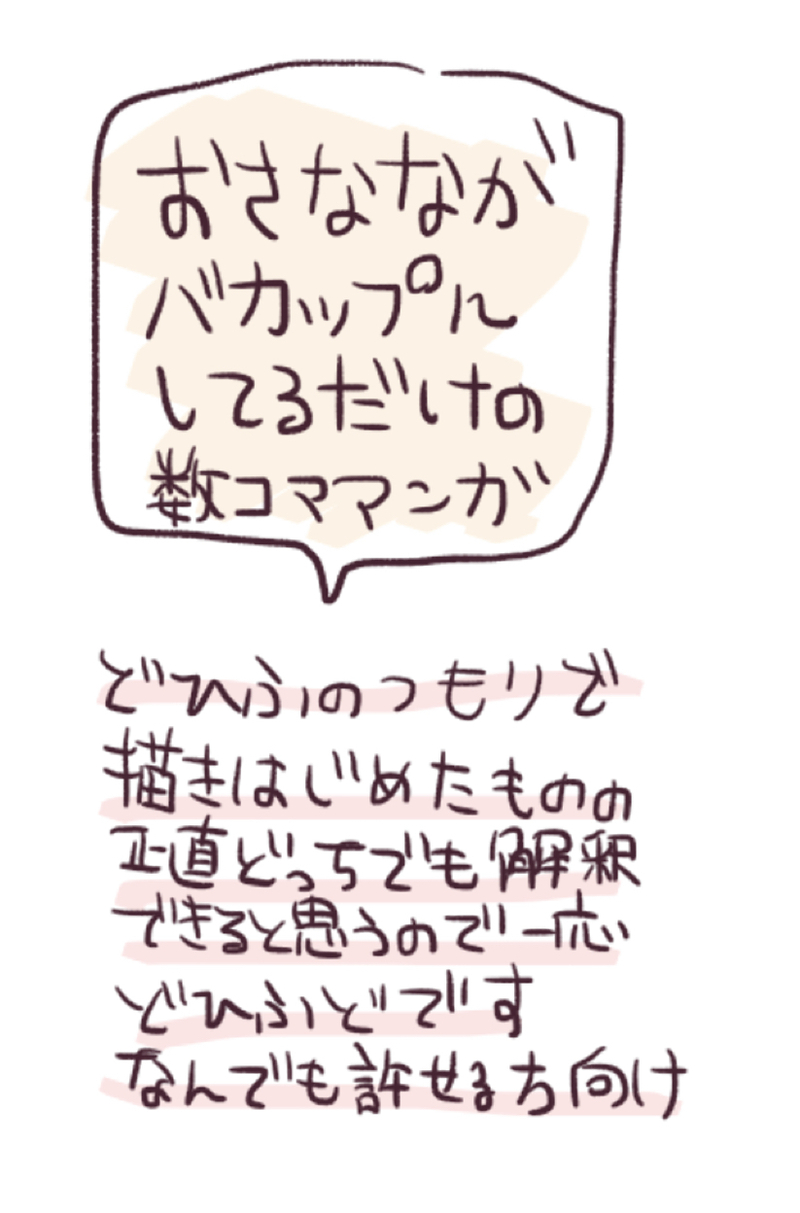 おさななが
バカップル
してるだけの
数コママンガ
どひふのつもりで
描きはじめたものの
正直どっちでも解釈
できると思うので一応
どひふどです
なんでも許せる方向け